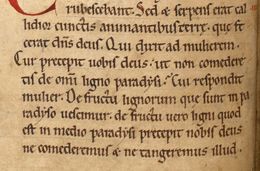 erubescebant. Sed & serpens erat cal
lidior cunctis animantibus terre. que fe
cerat dñs deus. Qui dixit ad mulierem.
Cur precepit uobis deus. ut non comedere
tis de omi ligno paradysi. Cui respondit
mulier. De fructu lignorum que sunt in pa
radyso uescimur. de fructu uero ligni quod
est in medio paradysi precepit nobis deus
ne comederemus & ne tangeremus illud.